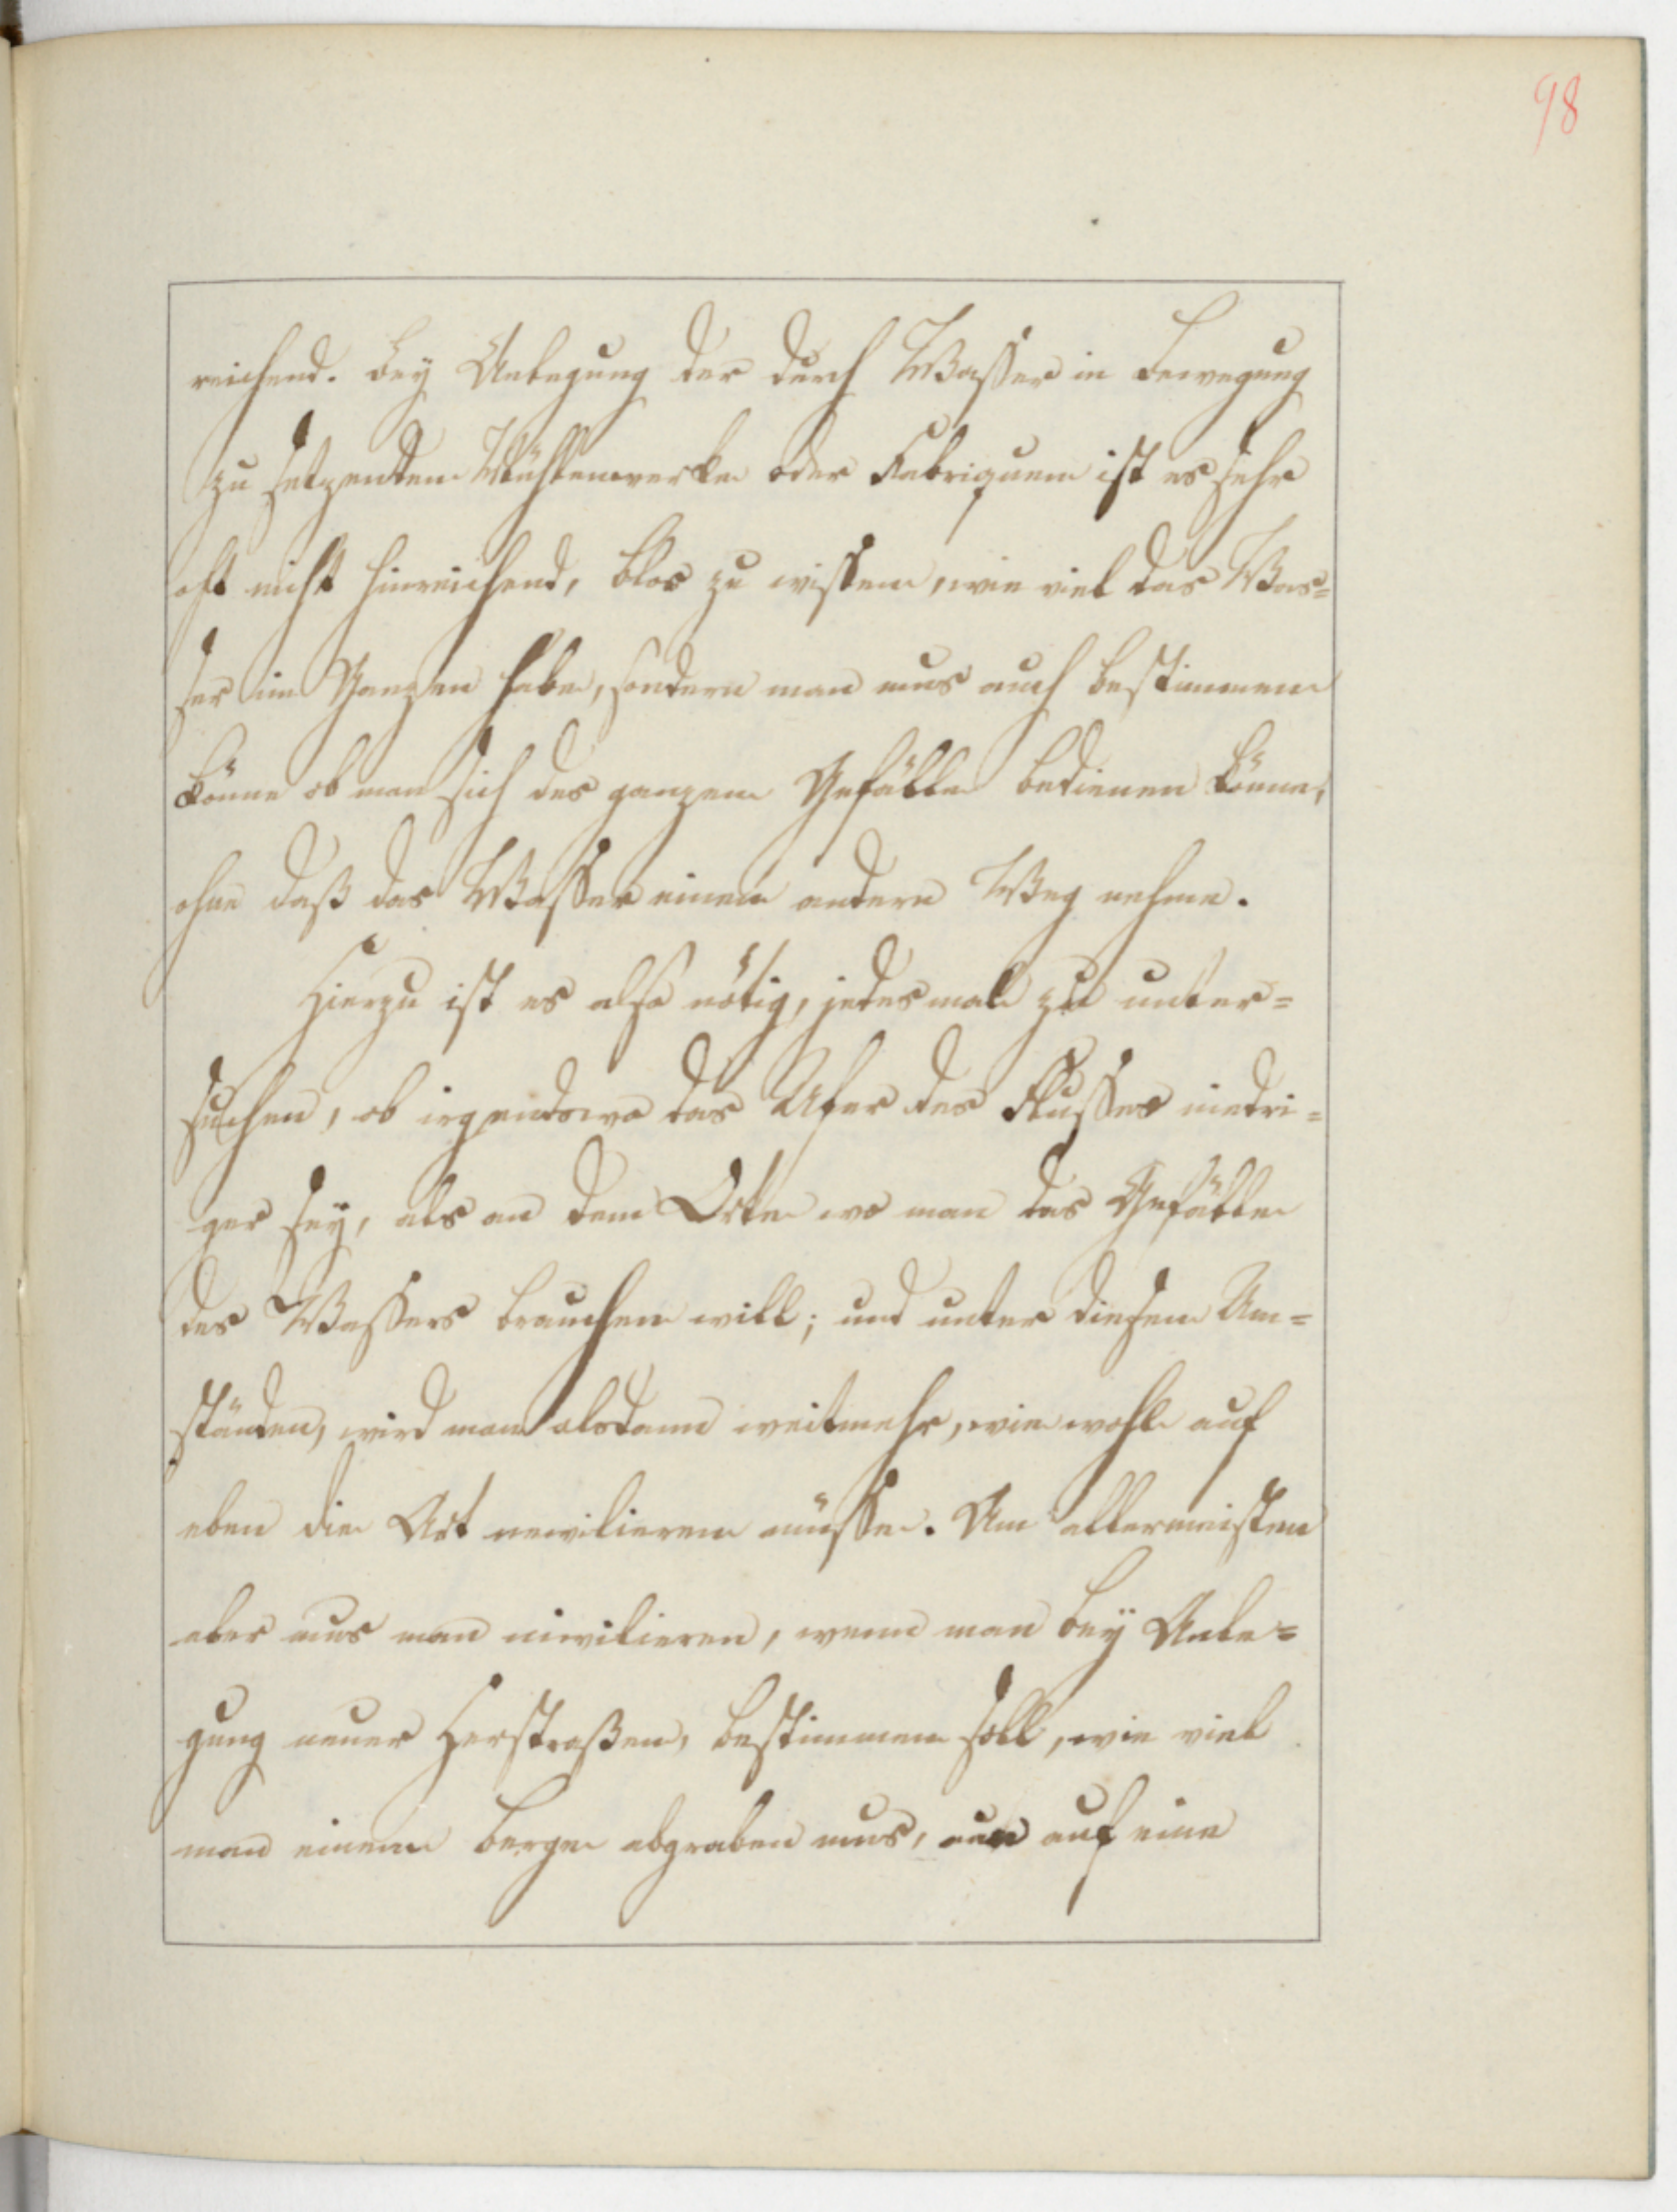 98
reichend. Bey Anlegung der durch Wasser in Bewegung
zu setzenden Mühlenwerke oder Fabriquen ist es sehr
oft nicht hinreichend, blos zu wissen, wie viel das Was=
ser im Ganzen habe, sondern man mus auch bestimmen
könne ob man sich des ganzen Gefälle bedienen könne,
ohne daß das Wasser einen andern Weg nehme.
Hierzu ist es also nötig, jedesmal zu unter=
suchen, ob irgendswo das Ufer des Flusses niedri=
ger sey, als an dem Orte wo man das Gefälle
des Wassers brauchen will; und unter diesen Um=
ständen, wird man alsdann weitmehr, wie wohl auf
eben die Art newilieren müsse. Am allermeisten
aber mus man niwilieren, wenn man bey Anle=
gung neuer Herstraßen, bestimmen soll, wie viel
man einem Berge abgraben mus, um auf eine